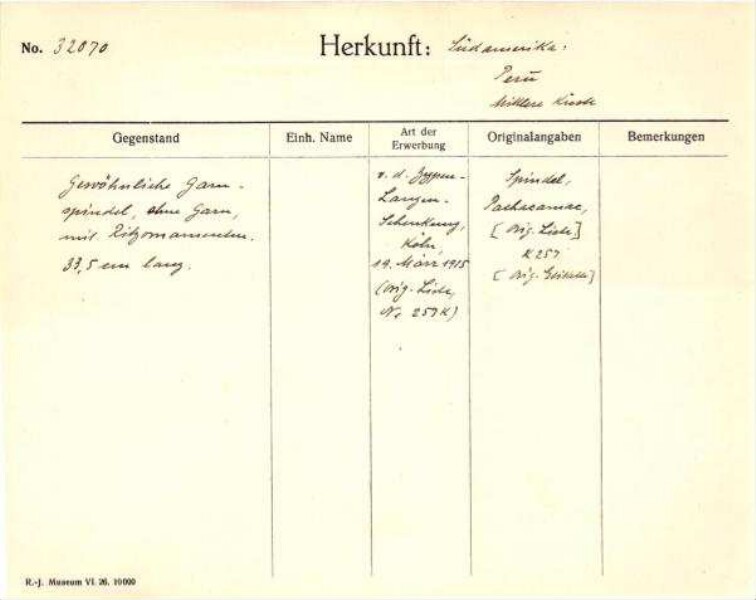 No. 32070
Herkunft: Südamerika:
Peru
Mittlere Küste
Gegenstand
Einh. Name
Art der
Erwerbung
Originalangaben
Bemerkungen
Gewöhnliche Garn-
spindel, ohne Garn,
mit Ritzornamenten.
33,5 cm lang.
v. d. Zypen-
Langen-
Schenkung,
Köln,
19. März 1915
(Orig. Liste,
Nr 257 K)
Spindel,
Pachacamac,
[Orig. Liste]
K 257
[Orig. Etikette]
R.-J. Museum VI. 26. 10000